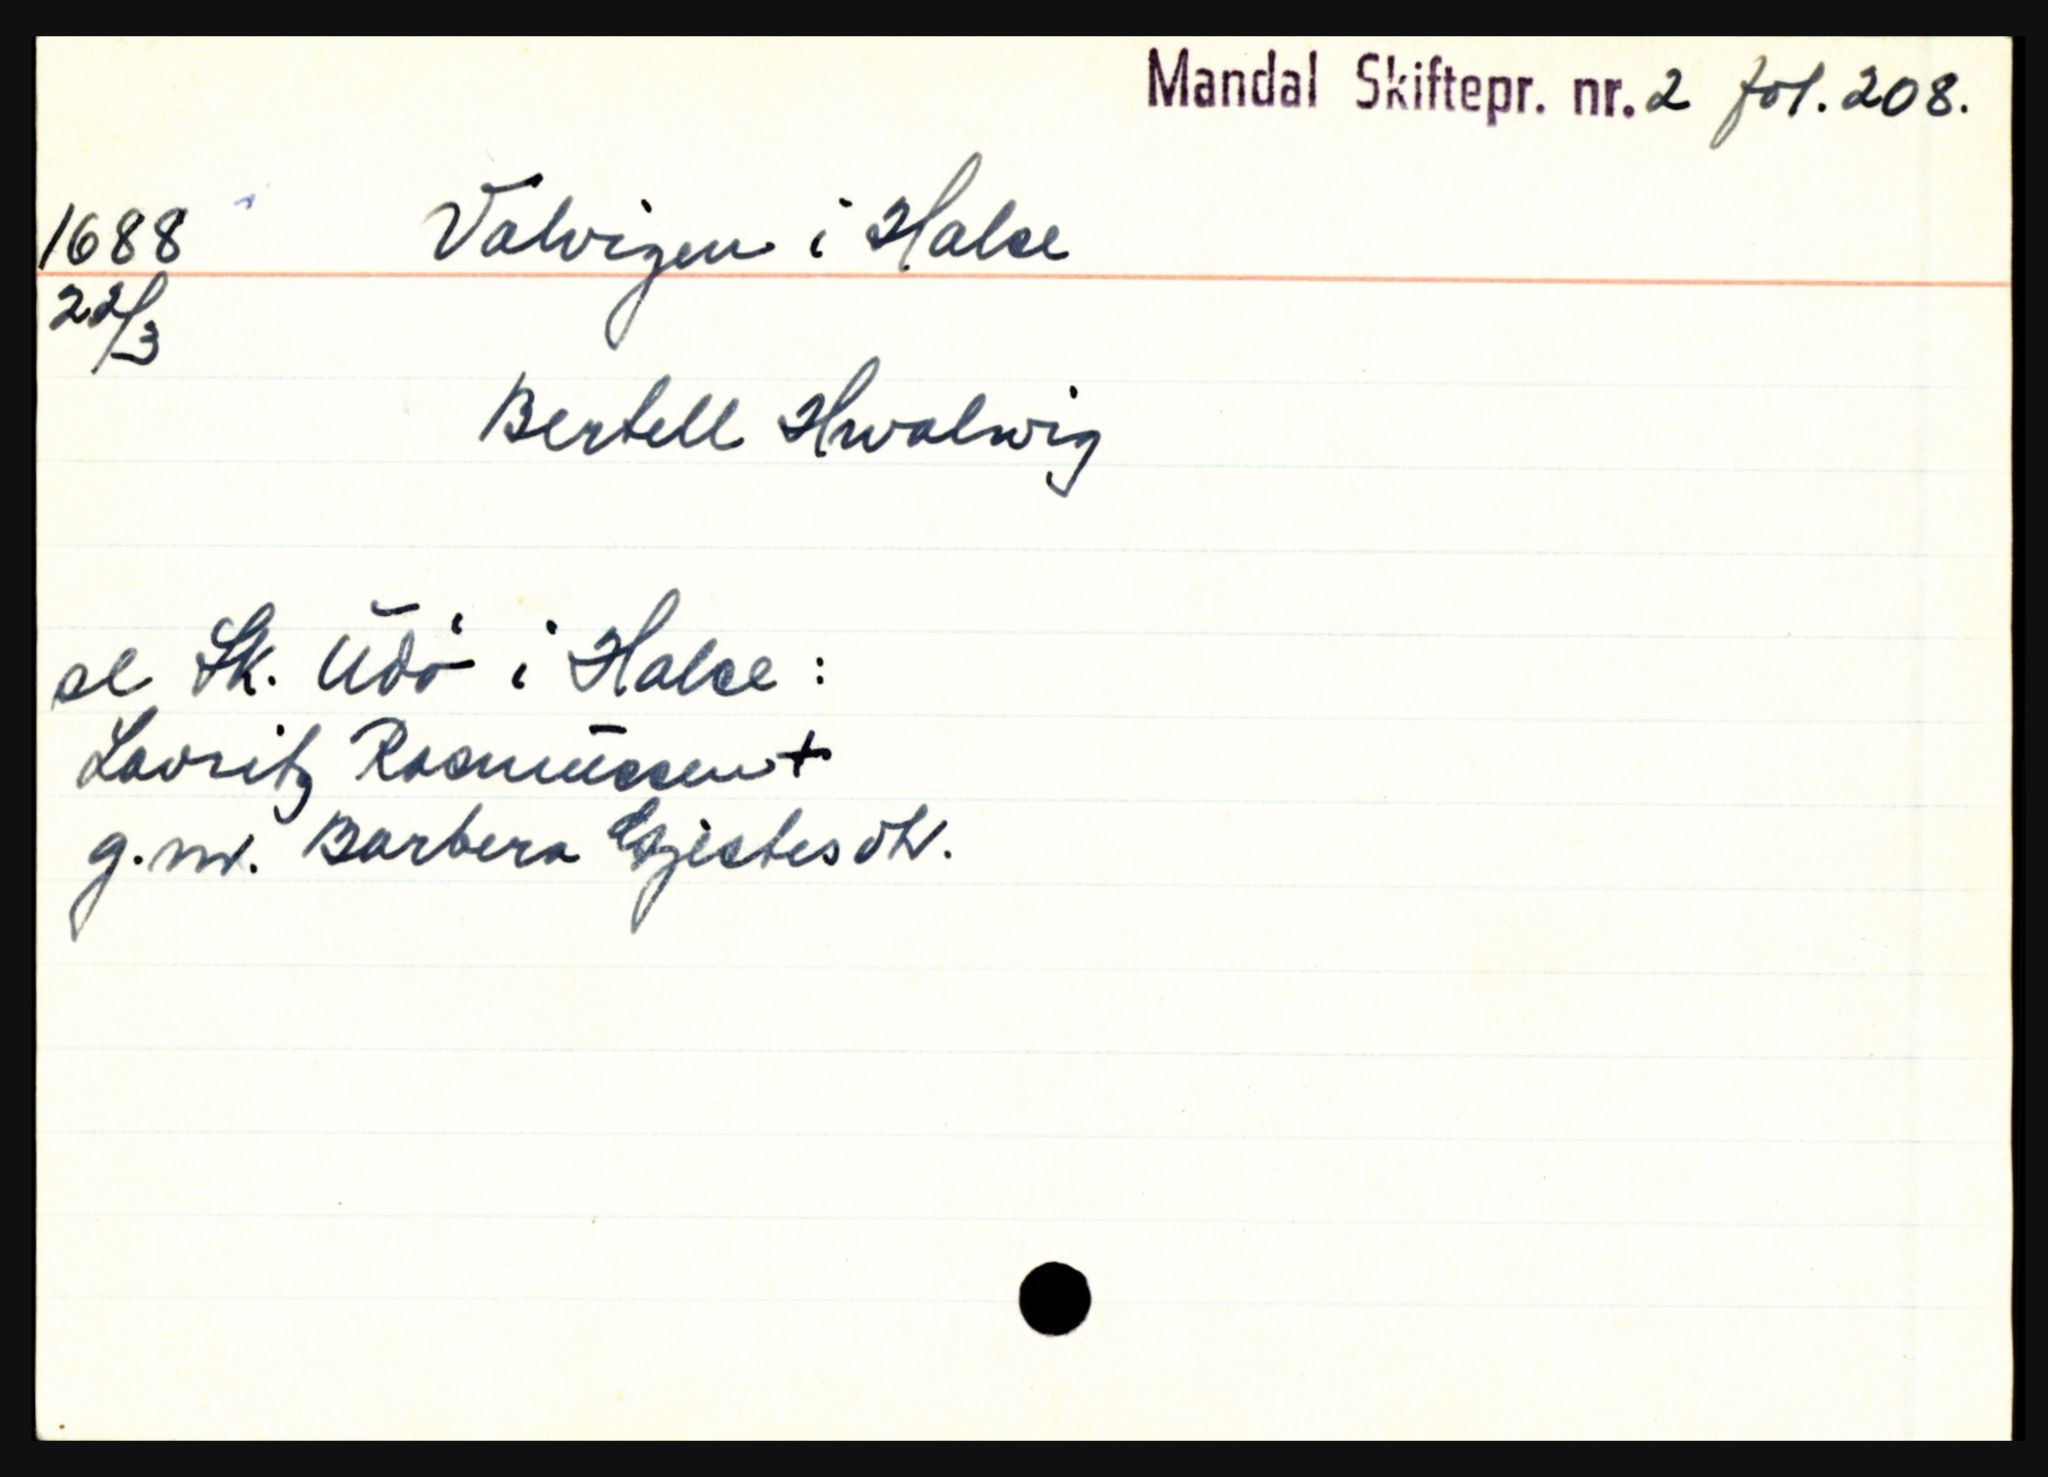 Mandal Skiftepr. nr. 2 fol. 208.
1688 Valvigen i Halse
22/3
Bertell Hwalwig
se Sk. Udö i Halse:
Lavritz Rasmussen +
g.m. Barbera dtr.